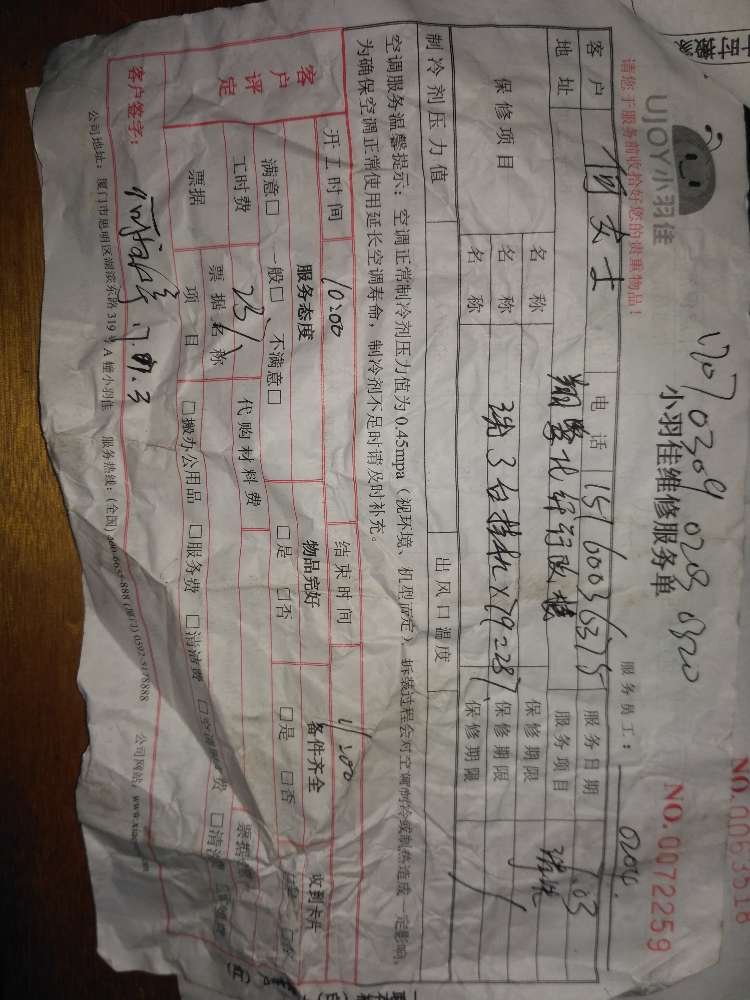 UJOY小羽佳
小羽佳维修服务单
NO.0072259
请您于服务前收拾好您的贵重物品！
服务员工：
客户 何女士 电话 15160036375 服务日期 7.03
地址 翔鹭化纤行政楼 服务项目 清洗
保修项目 名称 保修期限
名称 洗3台挂机×79=237 保修期限
名称 保修期限
制冷剂压力值 出风口温度
空调服务温馨提示：空调正常制冷剂压力值为0.45mpa（视环境、机型而定）、拆装过程会对空调制冷或制热造成一定影响，
为确保空调正常使用延长空调寿命，制冷剂不足时请及时补充。
开工时间 10:00 结束时间 11:00
客户评定 服务态度 物品完好 备件齐全 收到卡片
满意□ 一般□、不满意□ □是 □否 □是 □否
工时费 237 代购材料费
票据 票据名称
项目 □搬办公用品 □服务费 □清洁费
客户签字：
公司地址：厦门市思明区湖滨东路319号A幢小羽佳 服务热线：(全国)400-6657-888 (厦门) 0592-8178888 公司网站：